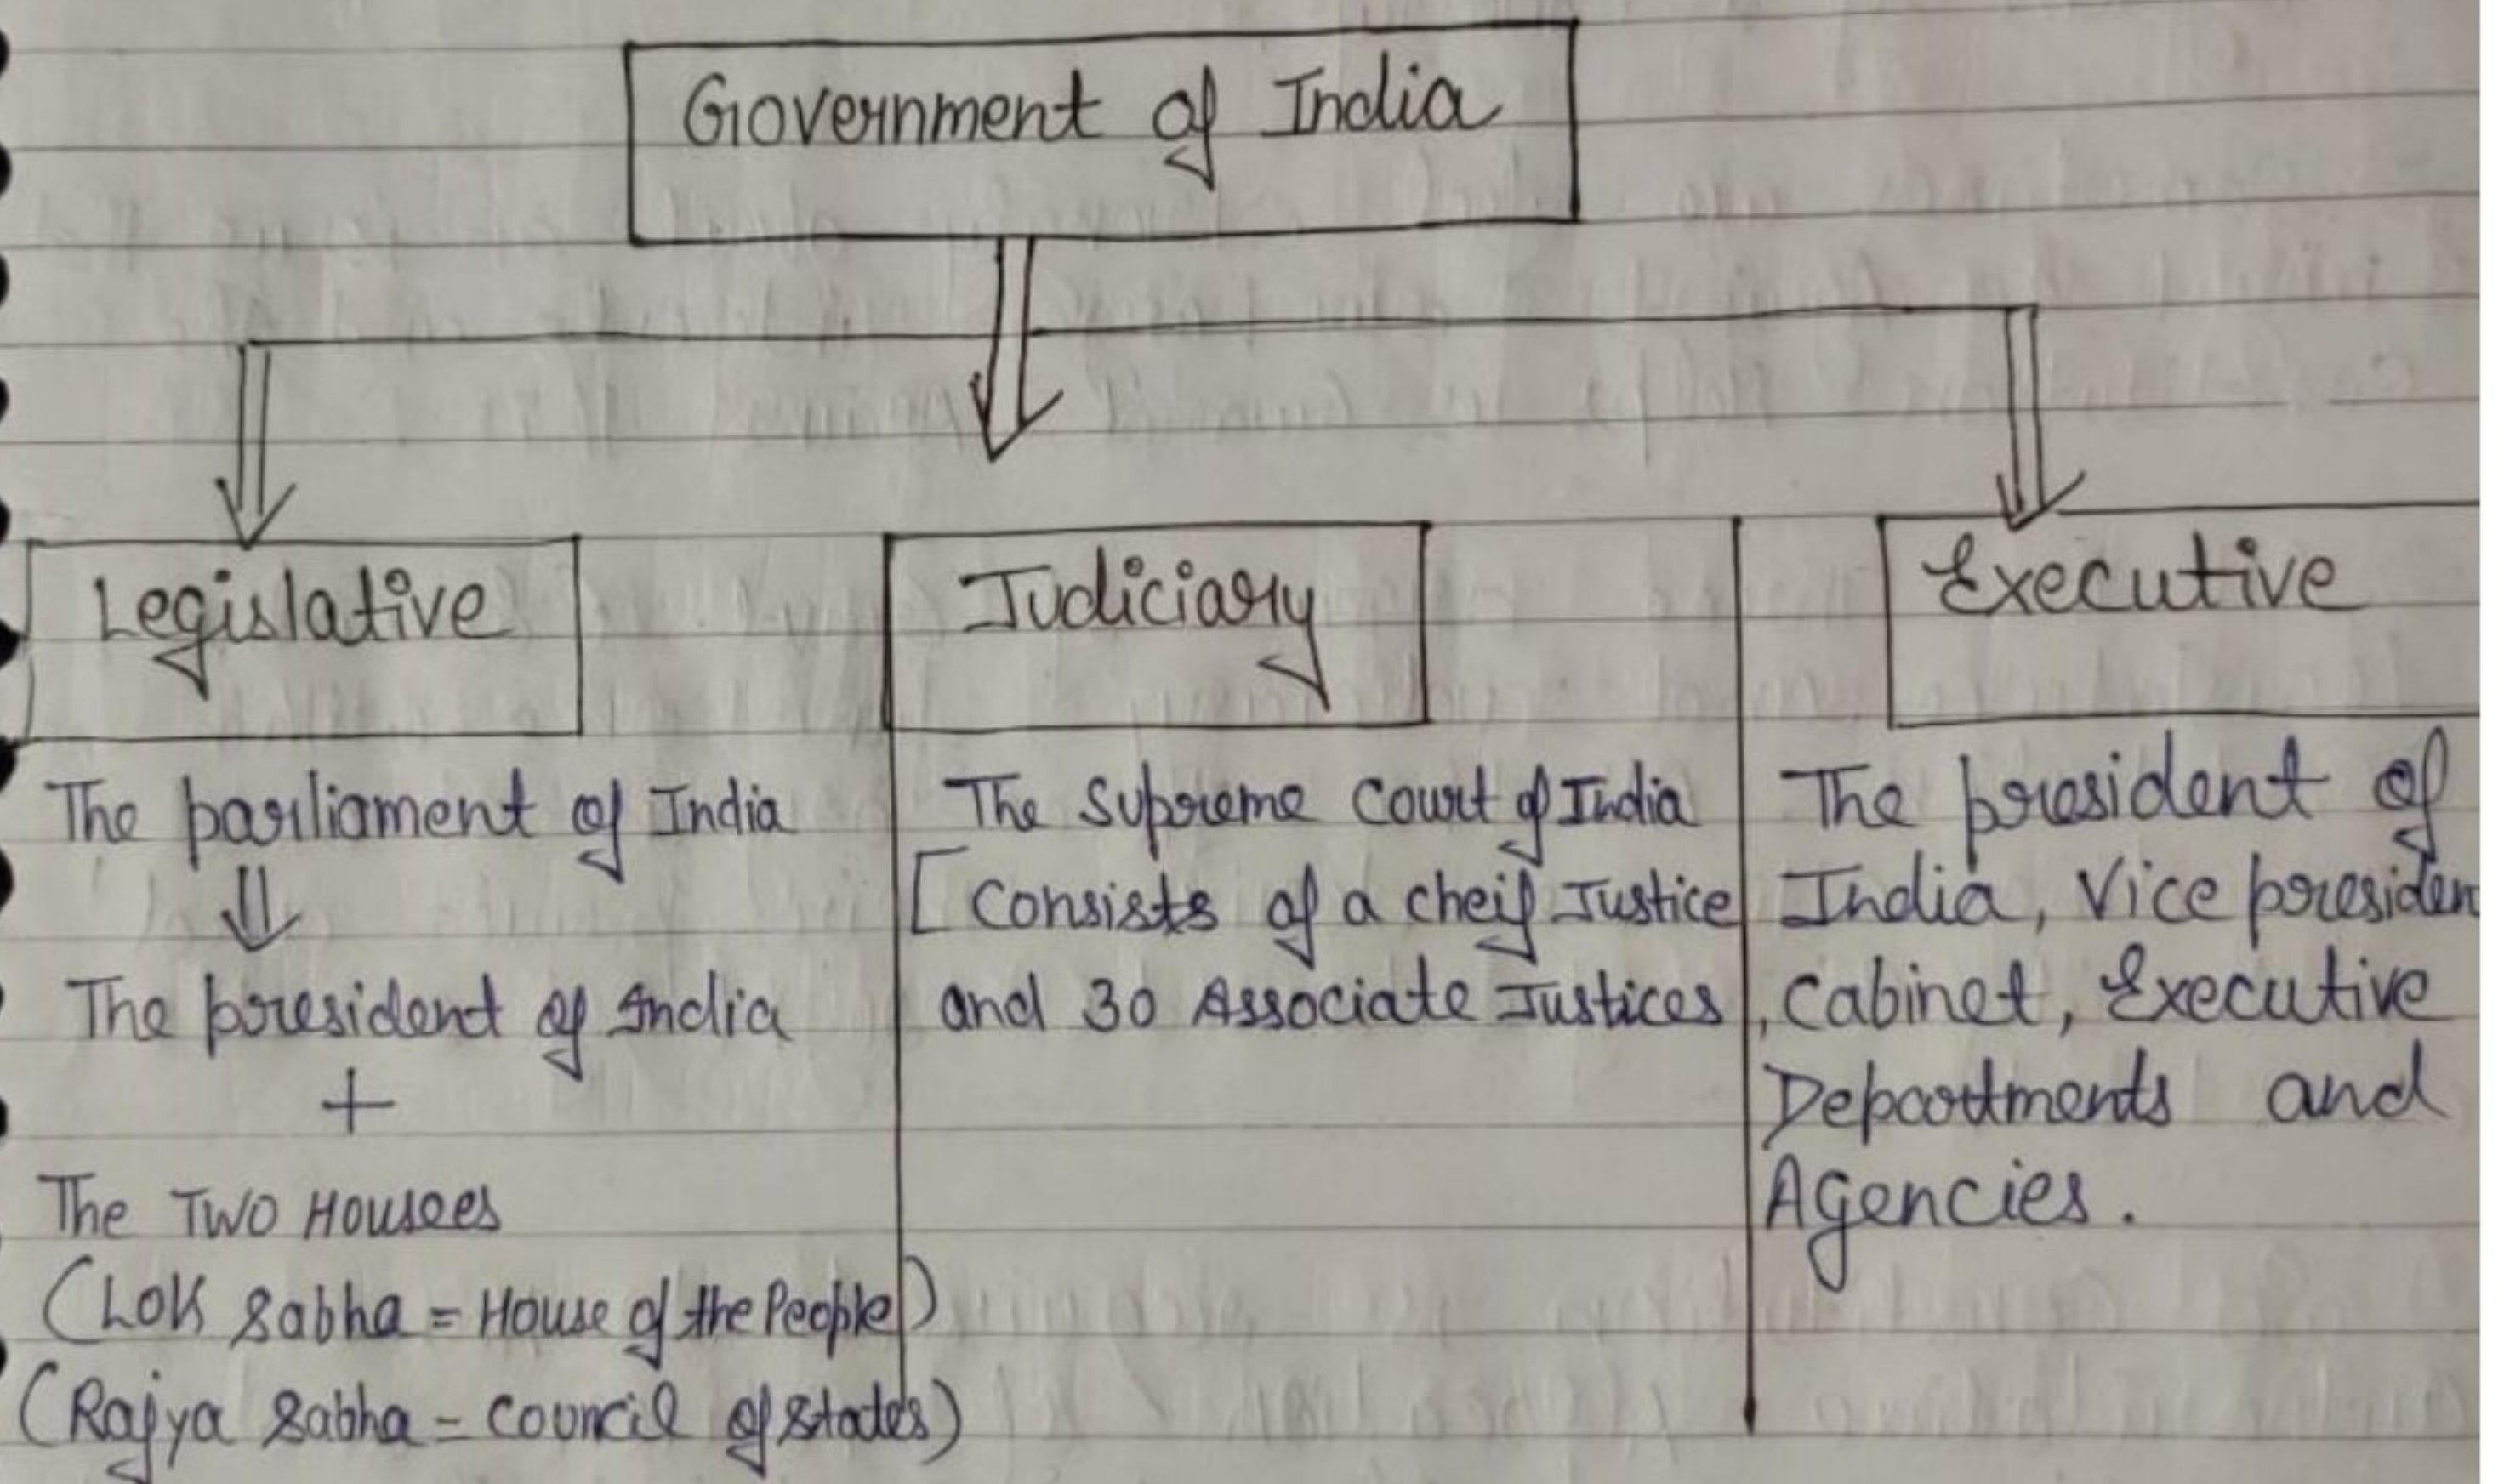 Government of India
Legislative
The parliament of India
The president of India
+
The Two Housees
(Lok Sabha = House of the People)
(Rajya Sabha - Council of States)
Judiciary
The Supreme Court of India
[Consists of a cheif Justice
and 30 Associate Justices
Executive
The president of
India, Vice presiden
, Cabinet, Executive
Departments and
Agencies.